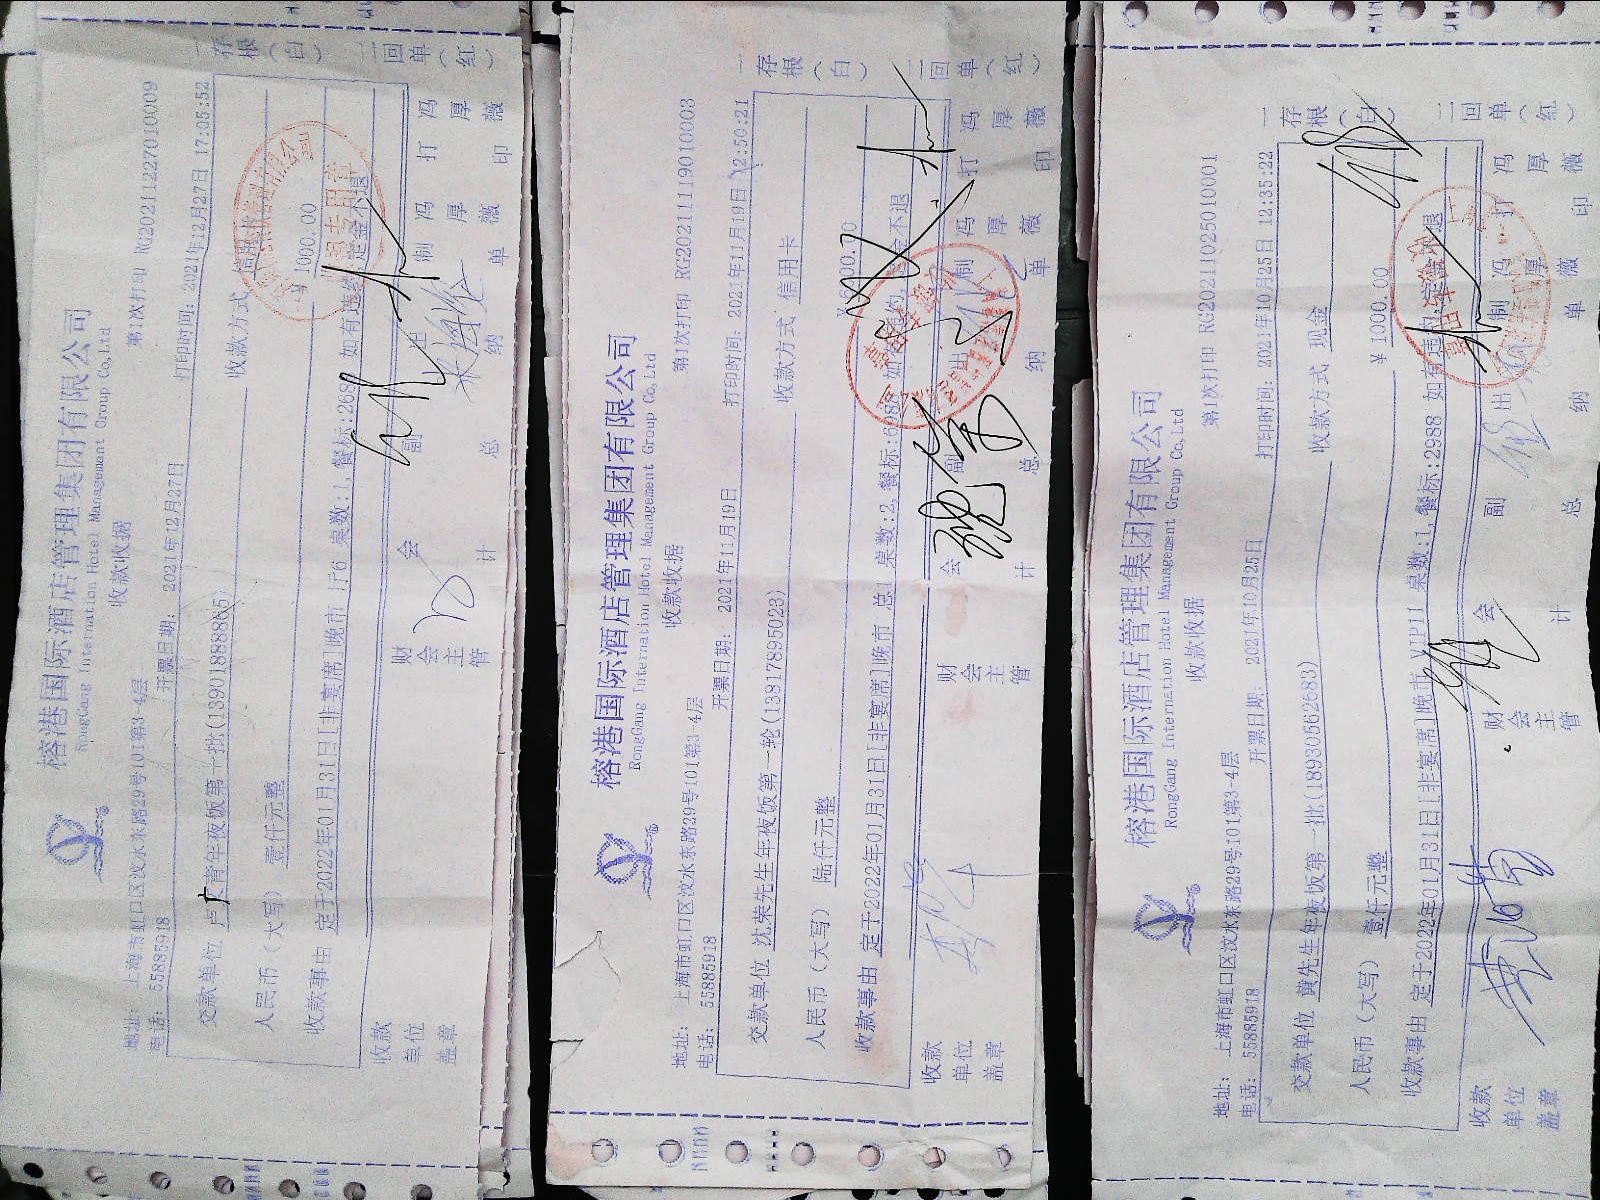 榕港国际酒店管理集团有限公司
RongGang International Hotel Management Group Co,Ltd
收款收据
第1次打印 RG20211227010009
地址: 上海市虹口区汶水东路29号101第3-4层
电话: 55885918
开票日期: 2021年12月27日
打印时间: 2021年12月27日 17:05:52
交款单位 卢 青年夜饭第一批(13901888865)
收款方式
人民币(大写) 壹仟元整
¥ 1000.00
收款事由 定于2022年01月31日[非宴席]晚市 1厅6 桌数:1,餐标:268 如有违约 定金不退
收款单位盖章
财会主管
会计
副总
出纳
制单 冯厚薇
打印 冯厚薇
一存根(白)
二回单(红)
榕港国际酒店管理集团有限公司
RongGang International Hotel Management Group Co,Ltd
收款收据
第1次打印 RG20211119010003
地址: 上海市虹口区汶水东路29号101第3-4层
电话: 55885918
开票日期: 2021年11月19日
打印时间: 2021年11月19日 12:50:21
交款单位 沈荣先生年夜饭第一轮(13817895023)
收款方式 信用卡
人民币(大写) 陆仟元整
收款事由 定于2022年01月31日[非宴席]晚市 总1 桌数:2,餐标:6988 如有违约 定金不退
收款单位盖章
财会主管
会计
副总
出纳
制单 冯厚薇
打印 冯厚薇
一存根(白)
二回单(红)
榕港国际酒店管理集团有限公司
RongGang International Hotel Management Group Co,Ltd
收款收据
第1次打印 RG20211025010001
地址: 上海市虹口区汶水东路29号101第3-4层
电话: 55885918
开票日期: 2021年10月25日
打印时间: 2021年10月25日 12:35:22
交款单位 黄先生年夜饭第一批(18930562683)
收款方式 现金
人民币(大写) 壹仟元整
¥ 1000.00
收款事由 定于2022年01月31日[非宴席]晚市 VIP11 桌数:1,餐标:2988 如有违约,定金不退
收款单位盖章
财会主管
会计
副总
出纳
制单 冯厚薇
打印 冯厚薇
一存根(白)
二回单(红)